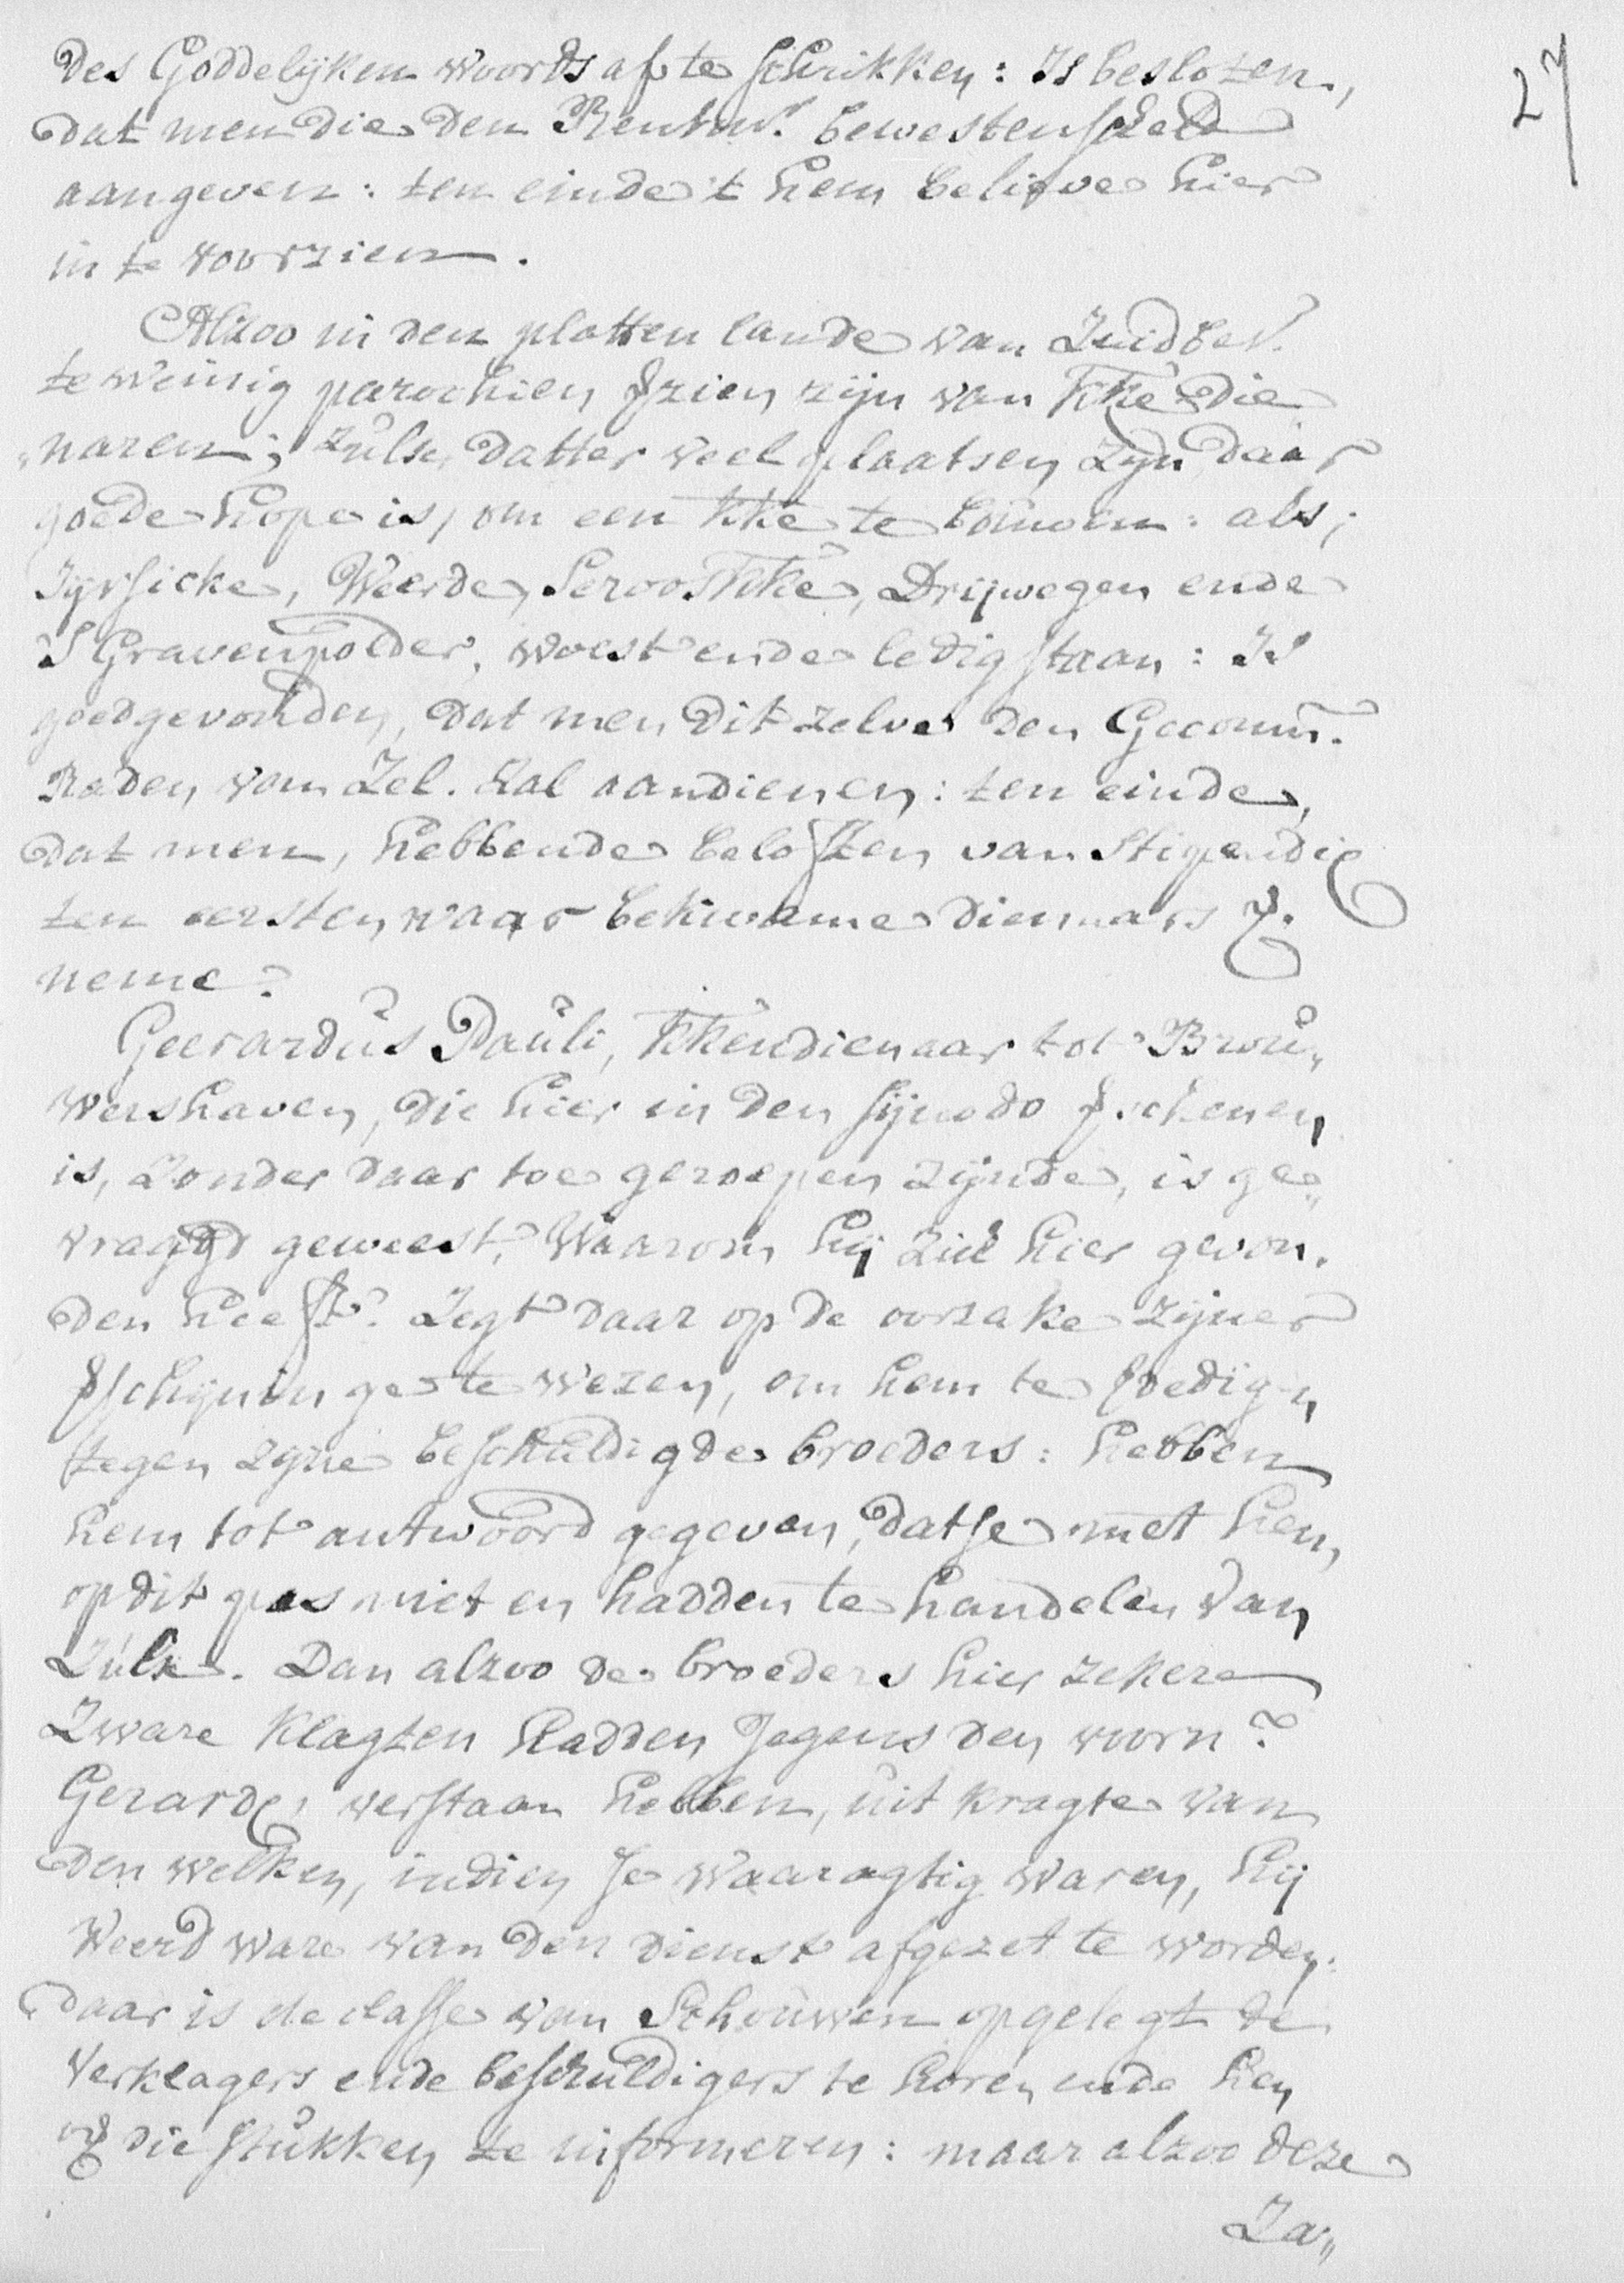 27
Des Goddelijken woords af te schrikken: Is besloten,
dat men die den Rentmr. bewestenscheld
aangeven: ten einde 't hem believe hier
in te voorzien.
Alzoo in den platten lande van Zuidbev.
te weinig parochien zien zijn van kke die„
„naren; zulx, datter veel plaatsen zyn, daar
goede hope is, om een kke te bouwen: als;
Iyrsicke, Weerde, Serooskke, Drijwegen ende
S Gravenpolder, woest ende ledig staan: Is
goedgevonden, dat men dit zelve den Gecomm.
Raden van Zel. zal aandienen: ten einde,
dat men, hebbende beloften van stipendie
ten eersten naar bekwame dienaars
neme.
Geerardus Pauli, kkendienaar tot Brou„
wershaven, die hier in den sijnodo schenen
is, zonder daar toe geroepen zijnde, is ge„
vraagd geweest, Waarom hij zich hier gevon.
den heeft? Zegt daar op de oorzake zijner
schijninge te wezen, om hem te dedigen
tegen zyne beschuldigde broeders: hebben
hem tot antwoord gegeven, datse met hem
op dit pas niet en hadden te handelen van
Zulx. Dan alzoo de broeders hier zekere
Zware klagten hadden jegens den voorn.
Gerarde, verstaan hebben, uit kragte van
den welken, indien se waaragtig waren, hij
Weerd ware van den dienst afgezet te worden.
daar is de classe van Schouwen opgelegt de
Verklagers ende beschuldigers te horen ende hen
die stukken te informeren: maar alzoo deze
Za„